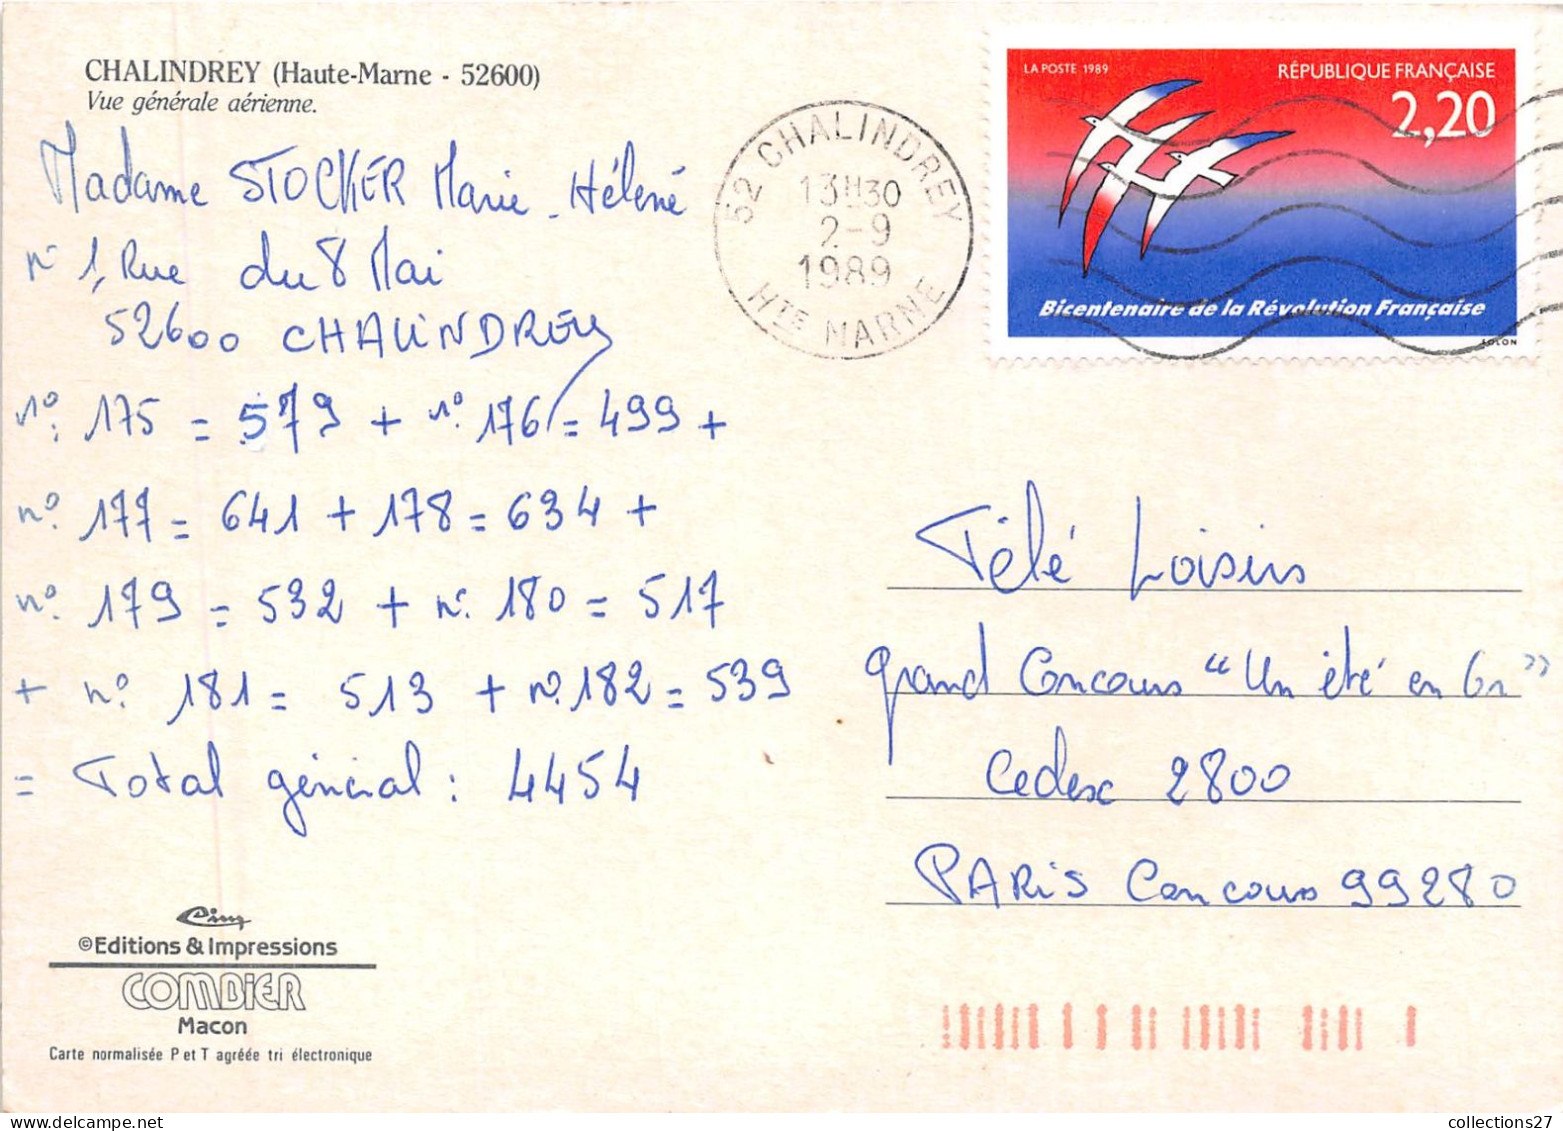 CHALINDREY (Haute-Marne - 52600)
Vue générale aérienne.
Madame STOCKER Marie-Hélène
n° 1, Rue du 8 Mai
52600 CHALINDREY
n°: 175 = 579 + n°. 176 = 499 +
n°. 177 = 641 + 178 = 634 +
n°. 179 = 532 + n°. 180 = 517
+ n°. 181 = 513 + n°. 182 = 539
= Total général : 4454
Cim
©Editions & Impressions
COMBIER
Macon
Carte normalisée P et T agréée tri électronique
52 CHALINDREY
13H30
2-9
1989
HTE MARNE
LA POSTE 1989
RÉPUBLIQUE FRANÇAISE
2,20
Bicentenaire de la Révolution Française
FOLON
Télé Loisirs
Grand Concours "Un été en Or"
Cedex 2800
PARIS Concours 99280
collections27